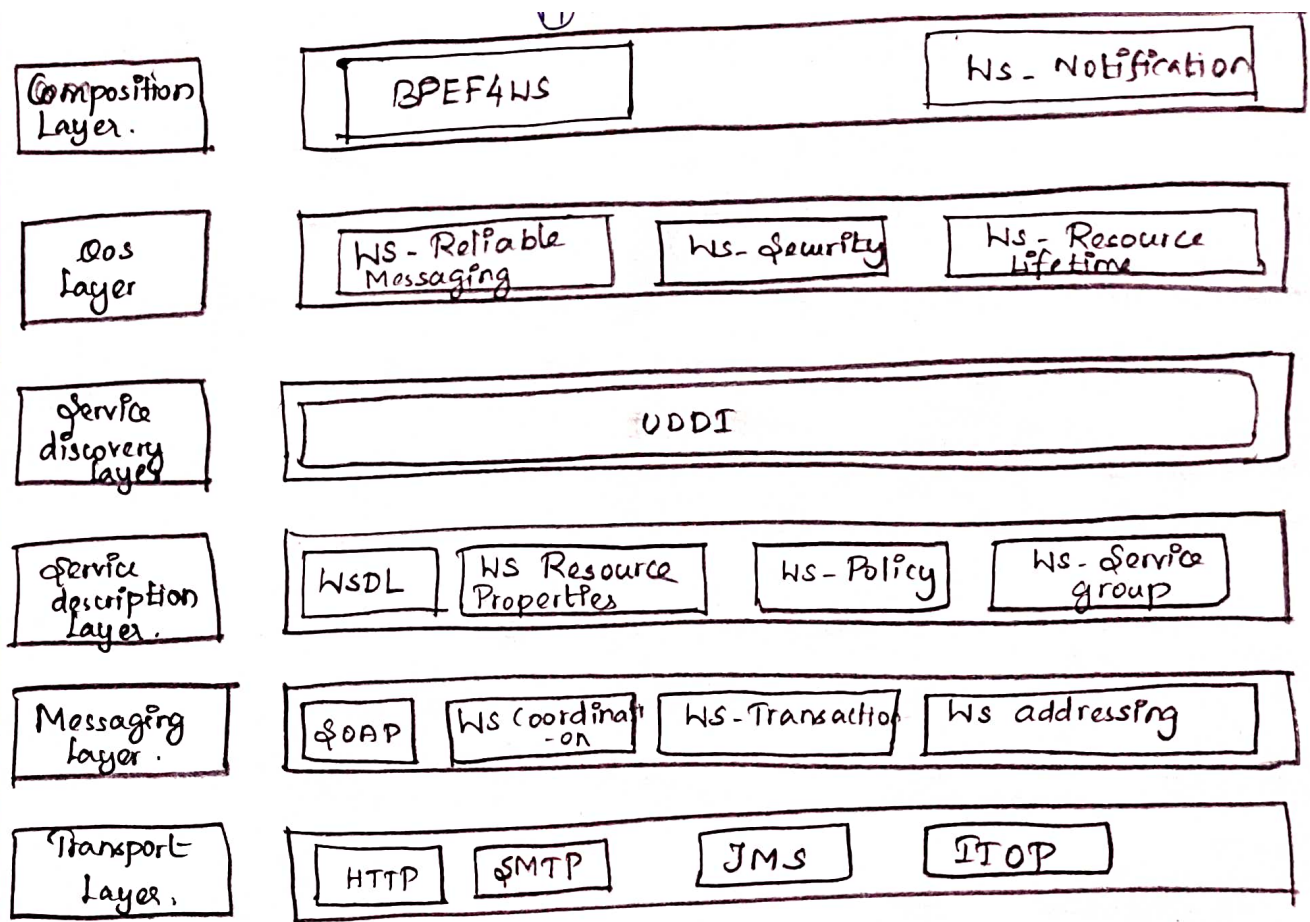 1
Composition
Layer.
BPEF4WS
WS - Notification
Qos
Layer
WS - Reliable
Messaging
WS - Security
WS - Resource
Lifetime
Service
discovery
layer
UDDI
Service
description
Layer.
WSDL
WS Resource
Properties
WS - Policy
WS - Service
group
Messaging
Layer.
SOAP
WS Coordinati
-on
WS - Transaction
WS addressing
Transport
Layer.
HTTP
SMTP
JMS
ITOP